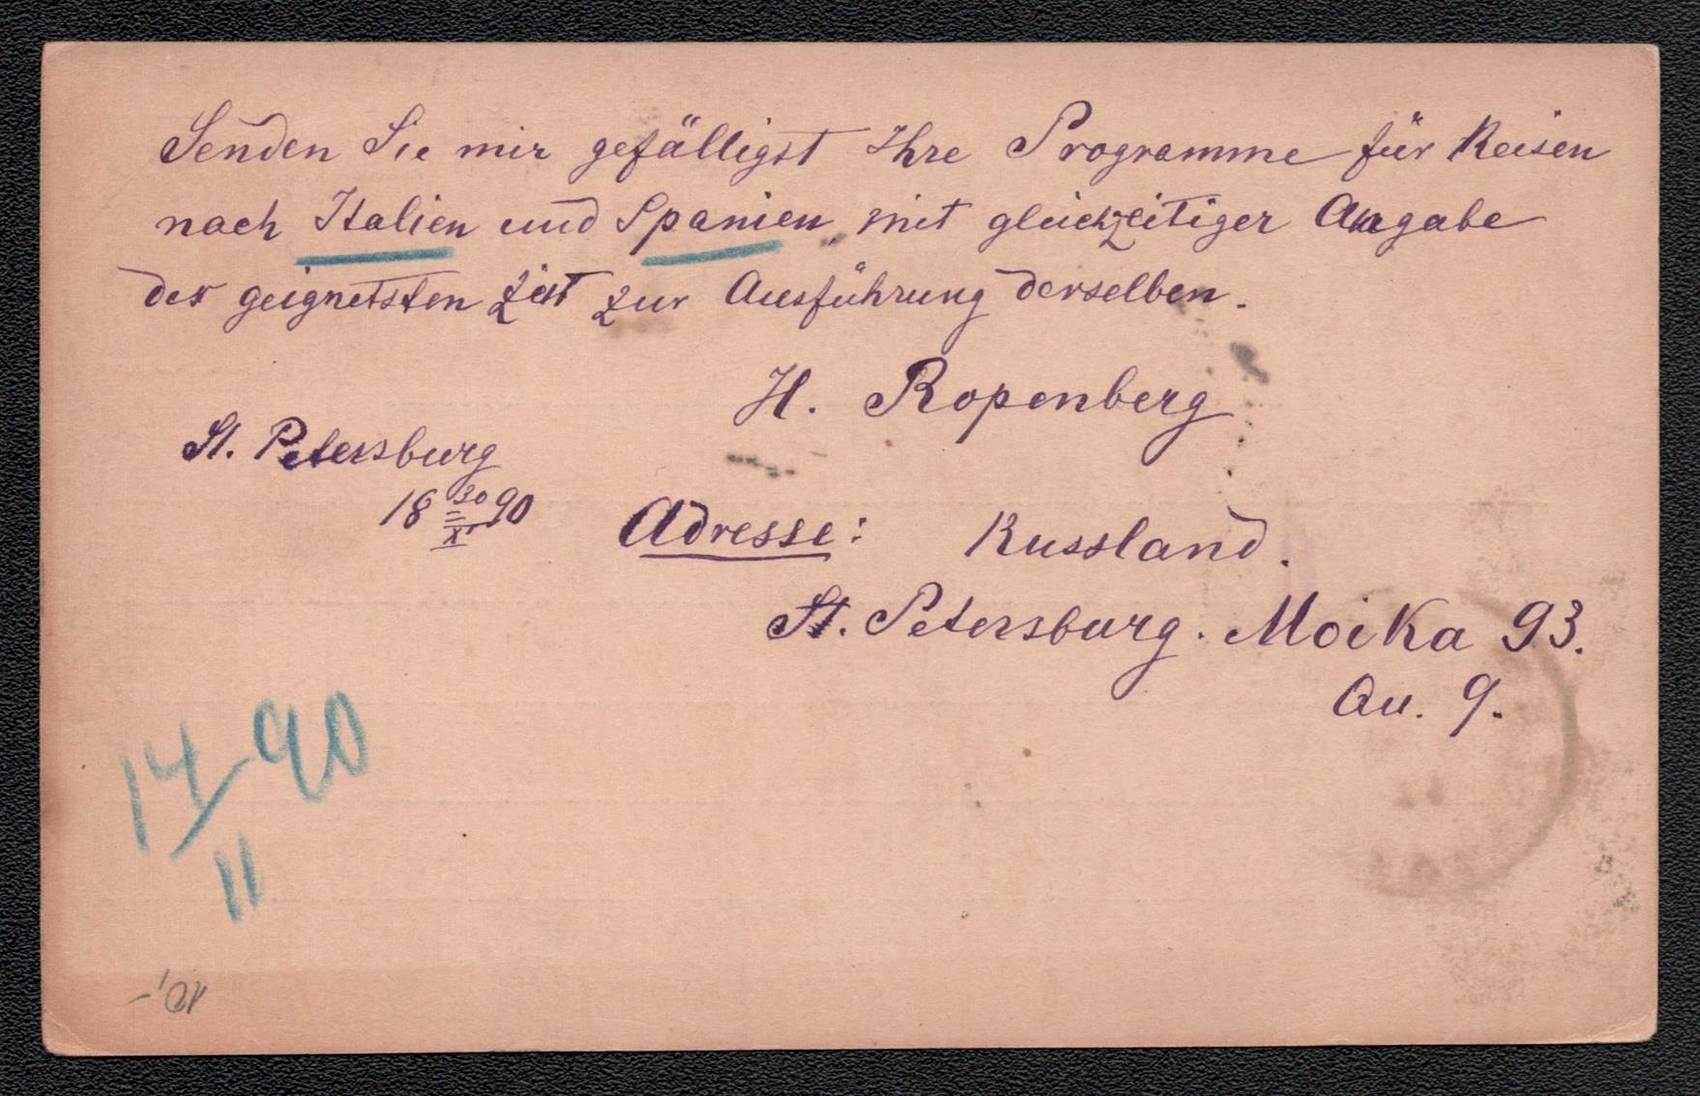 Senden Sie mir gefälligst Ihre Programme für Reisen
nach Italien und Spanien mit gleichzeitiger Angabe
der geignetsten Zeit zur Ausführung derselben.
H. Ropenberg
St. Petersburg
18 30/XI 90
Adresse: Russland.
St. Petersburg. Moika 93.
Qu. 9.
14/11 90